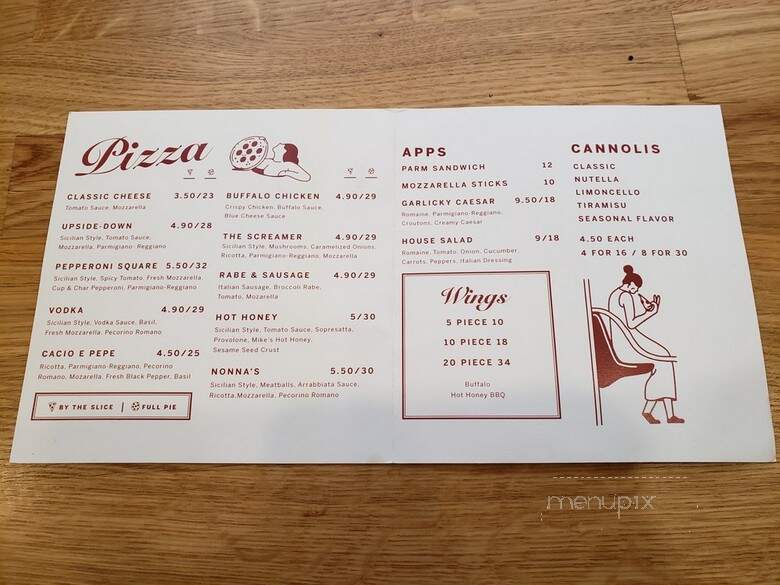 Pizza
CLASSIC CHEESE 3.50/23
Tomato Sauce, Mozzarella
UPSIDE-DOWN 4.90/28
Sicilian Style, Tomato Sauce,
Mozzarella, Parmigiano-Reggiano
PEPPERONI SQUARE 5.50/32
Sicilian Style, Spicy Tomato, Fresh Mozzarella,
Cup & Char Pepperoni, Parmigiano-Reggiano
VODKA 4.90/29
Sicilian Style, Vodka Sauce, Basil,
Fresh Mozzarella, Pecorino Romano
CACIO E PEPE 4.50/25
Ricotta, Parmigiano-Reggiano, Pecorino
Romano, Mozarella, Fresh Black Pepper, Basil
BY THE SLICE | FULL PIE
BUFFALO CHICKEN 4.90/29
Crispy Chicken, Buffalo Sauce,
Blue Cheese Sauce
THE SCREAMER 4.90/29
Sicilian Style, Mushrooms, Caramelized Onions,
Ricotta, Parmigiano-Reggiano, Mozzarella
RABE & SAUSAGE 4.90/29
Italian Sausage, Broccoli Rabe,
Tomato, Mozarella
HOT HONEY 5/30
Sicilian Style, Tomato Sauce, Sopresatta,
Provolone, Mike's Hot Honey,
Sesame Seed Crust
NONNA'S 5.50/30
Sicilian Style, Meatballs, Arrabbiata Sauce,
Ricotta,Mozzarella, Pecorino Romano
APPS
PARM SANDWICH 12
MOZZARELLA STICKS 10
GARLICKY CAESAR 9.50/18
Romaine, Parmigiano-Reggiano,
Croutons, Creamy Caesar
HOUSE SALAD 9/18
Romaine, Tomato, Onion, Cucumber,
Carrots, Peppers, Italian Dressing
Wings
5 PIECE 10
10 PIECE 18
20 PIECE 34
Buffalo
Hot Honey BBQ
CANNOLIS
CLASSIC
NUTELLA
LIMONCELLO
TIRAMISU
SEASONAL FLAVOR
4.50 EACH
4 FOR 16 / 8 FOR 30
menupix